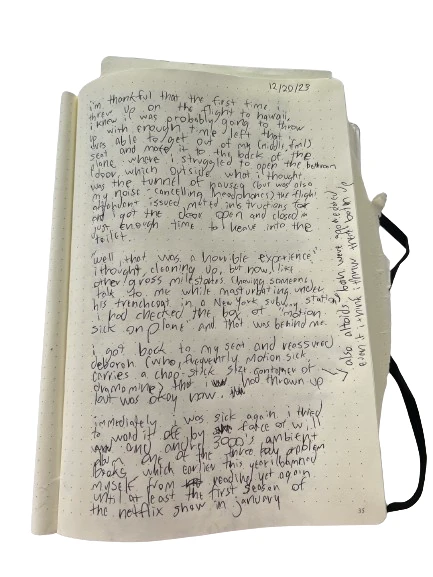 12/20/23
i'm thankful that the first time i
threw up on the flight to hawaii,
i knew i was probably going to throw
up with enough time left that i
was able to get out of my (middle, front)
seat and make it to the back of the
plane where i struggled to open the bathroom
door, which outside what i thought
was the tunnel of nausea (but was also
my noise-cancelling headphones) the flight
attendant issued muted instructions for
and i got the door open and closed in
just enough time to heave into the
toilet.
"well that was a horrible experience,"
i thought, cleaning up, but now, like
other gross milestones (having someone
talk to me while masturbating under
his trenchcoat in a New York subway station)
i had checked the box of "motion
sick on plane" and that was behind me.
i got back to my seat and reassured
deborah (who, frequently motion sick
carries a chop-stick size container of
dramamine) that i had thrown up
but was okay now.
immediately i was sick again. i tried
to ward it off by force of will
and andré 3000's ambient
one of the three body problem
books which earlier this year i banned
myself from reading yet again
until at least the first season of
the netflix show in january
also altoids, both were
even if i think i threw them both up
33